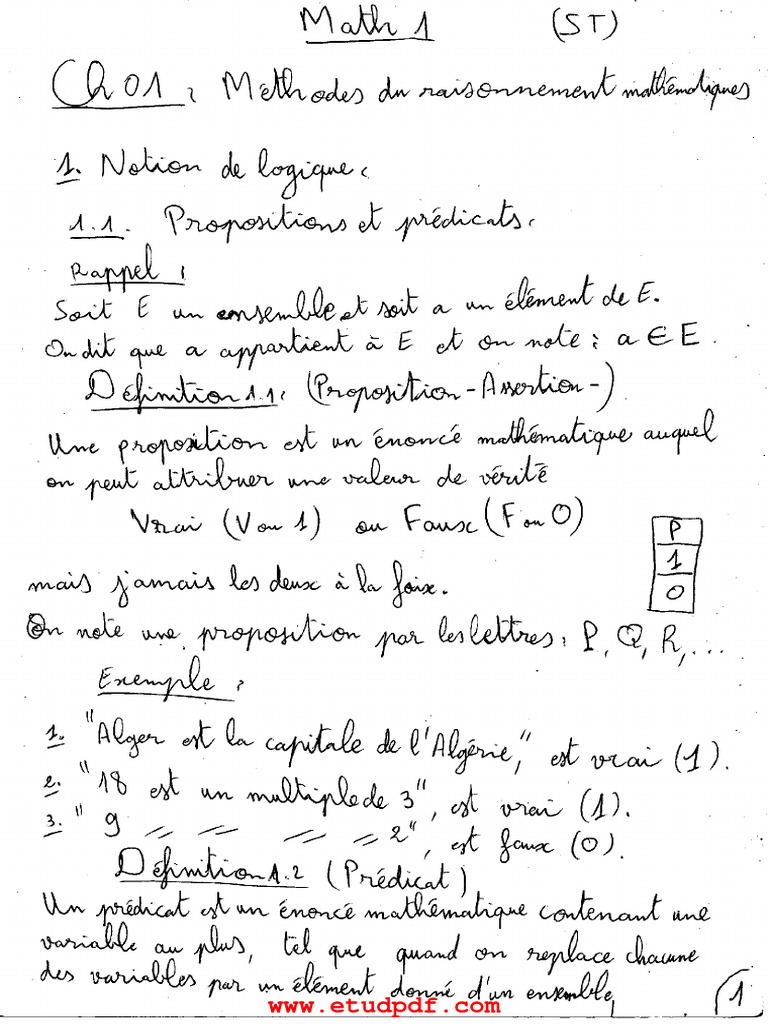 Math 1 (ST)
Ch 01 : Méthodes du raisonnement mathématiques
1. Notion de logique :
1.1. Propositions et prédicats :
Rappel :
Soit E un ensemble et soit a un élément de E.
On dit que a appartient à E et on note : a ∈ E.
Définition 1.1 : (Proposition - Assertion -)
Une proposition est un énoncé mathématique auquel
on peut attribuer une valeur de vérité
Vrai (V ou 1) ou Faux (F ou 0)
P
1
0
mais jamais les deux à la foix.
On note une proposition par les lettres : P, Q, R, ...
Exemple :
1. "Alger est la capitale de l'Algérie", est vrai (1).
2. "18 est un multiple de 3", est vrai (1).
3. "9 〃 〃 〃 〃 2", est faux (0).
Définition 1.2 (Prédicat)
Un prédicat est un énoncé mathématique contenant une
variable au plus, tel que quand on replace chacune
des variables par un élément donné d'un ensemble,
www.etudpdf.com
1